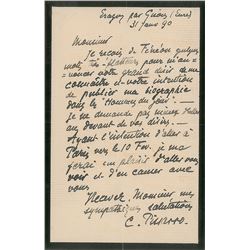 Eragny par Gisors (Eure)
31 Janv 90
Monsieur
Je reçois de Fénéon quelques
mots m'an
nonce votre grand désir de me
connaître et votre intention
de publier ma biographie
dans les Hommes du Jour! —
je ne demande pas mieux d'aller
au devant de vos désirs. —
Ayant l'intention d'aller à
Paris vers le 10 Fev. je me
ferai un plaisir d'aller vous
voir et d'en causer avec
vous
Recevez, Monsieur mes
sympathiques salutations
C. Pissarro